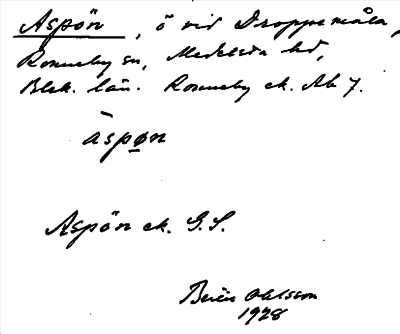 Aspön, ö vid Droppemåla,
Ronneby sn, Medelsta hd,
Blek. län. Ronneby ek. Ab 7.
āspø̱n
Aspön ek. G.S.
Ohlsson
1928